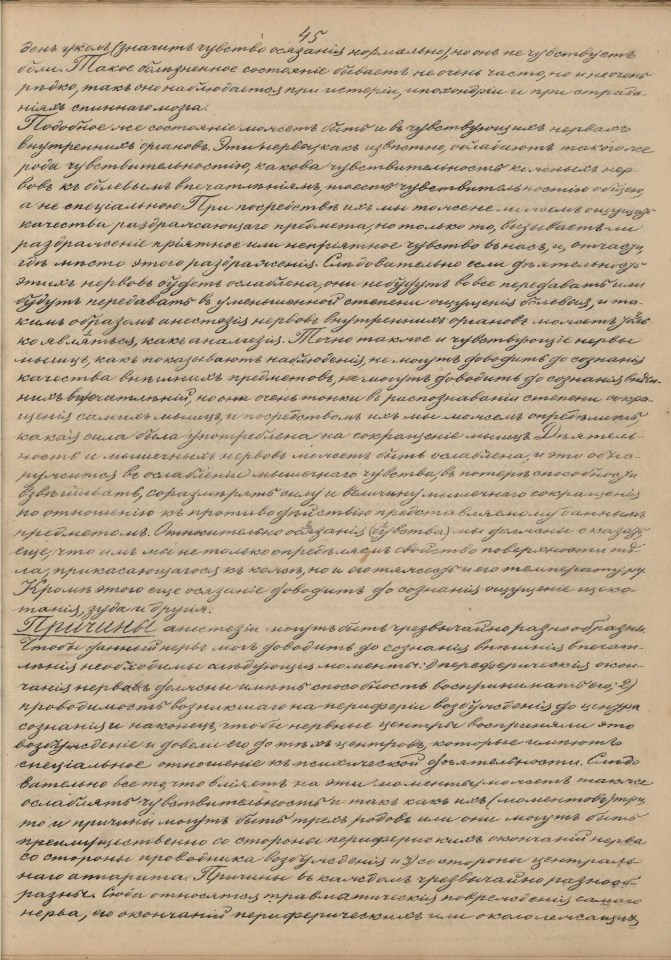 45
денъ уколъ (значитъ чувство осязанія нормально), но онъ не чувствуетъ
боли. Такое болѣзненное состояніе бываетъ не очень часто, но и не очень
рѣдко, такъ оно наблюдается при истеріи, ипохондріи и при страда-
ніяхъ спиннаго мозга.
Подобное же состояніе можетъ быть и въ чувствующихъ нервахъ
внутреннихъ органовъ. Эти нервы, какъ извѣстно, обладаютъ такого же
рода чувствительностію, какова чувствительность кожныхъ нер-
вовъ къ болевымъ впечатлѣніямъ, то есть чувствительностію общею,
а не спеціальною. При посредствѣ ихъ мы тоже не можемъ ощущать
качества раздражающаго предмета, но только то, вызываетъ ли
раздраженіе пріятное или непріятное чувство въ насъ, и, отчасти,
гдѣ мѣсто этого раздраженія. Слѣдовательно если дѣятельность
этихъ нервовъ будетъ ослаблена, они не будутъ вовсе передавать или
будутъ передавать въ уменьшенной степени ощущенія болевыя, и та-
кимъ образомъ анестезія нервовъ внутреннихъ органовъ можетъ толь
ко являться, какъ аналгезія. Точно также и чувствующіе нервы
мышцъ, какъ показываютъ наблюденія, не могутъ доводить до сознанія
качества внѣшнихъ предметовъ, не могутъ доводить до сознанія внѣш-
нихъ впечатлѣній, но они очень тонки въ распознаваніи степени сокра-
щенія самихъ мышцъ, и посредствомъ ихъ мы можемъ опредѣлить,
какая сила была употреблена на сокращеніе мышцъ. Дѣятель-
ность и мышечныхъ нервовъ можетъ быть ослаблена, и это обна-
ружится въ ослабленіи мышечнаго чувства, въ потерѣ способности
взвѣшивать, соразмѣрять силу и величину мышечнаго сокращенія
по отношенію къ противодѣйствію представляемому даннымъ
предметомъ. Относительно осязанія (чувства) мы должны сказать
еще, что имъ мы не только опредѣляемъ свойство поверхности тѣ
ла, прикасающагося къ кожѣ, но и его тяжесть и его температуру.
Кромѣ этого еще осязаніе доводитъ до сознанія ощущеніе щеко-
танія, зуда и другія.
Причины анестезіи могутъ быть чрезвычайно разнообразны.
Чтобы данный нервъ могъ доводить до сознанія внѣшнія впечат-
лѣнія необходимы слѣдующія моменты: 1) переферическія окон-
чанія нервовъ должны имѣть способность воспринимать его; 2)
проводимость возникшаго на периферіи возбужденія до центра
сознанія и наконецъ, чтобы нервные центры восприняли это
возбужденіе и довели его до тѣхъ центровъ, которые имѣютъ
спеціальное отношеніе къ психической дѣятельности. Слѣдо
вательно все то, что вліяетъ на эти моменты, можетъ также
ослаблять чувствительность и такъ какъ ихъ (моментовъ) три,
то и причины могутъ быть трехъ родовъ или они могутъ быть
преимущественно со стороны периферискихъ окончаній нерва
со стороны проводника возбужденія и 3) со стороны централь
наго аппарата. Причины въ каждомъ чрезвычайно разнооб-
разны. Сюда относятся травматическія поврежденія самаго
нерва, его окончаній периферическихъ или около лежащихъ